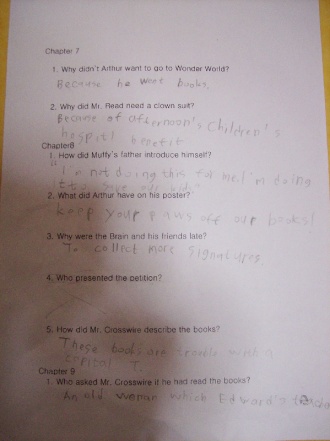 Chapter 7
1. Why didn't Arthur want to go to Wonder World?
Because he want books.
2. Why did Mr. Read need a clown suit?
Because of afternoon's Children's
hospitl benefit
Chapter8
1. How did Muffy's father introduce himself?
"I'm not doing this for me. I'm doing
to save our kids"
2. What did Arthur have on his poster?
keep your paws off our books!
3. Why were the Brain and his friends late?
To collect more signatures
4. Who presented the petition?
5. How did Mr. Crosswire describe the books?
These books are trouble with a
capital T.
Chapter 9
1. Who asked Mr. Crosswire if he had read the books?
An old woman which Edward's